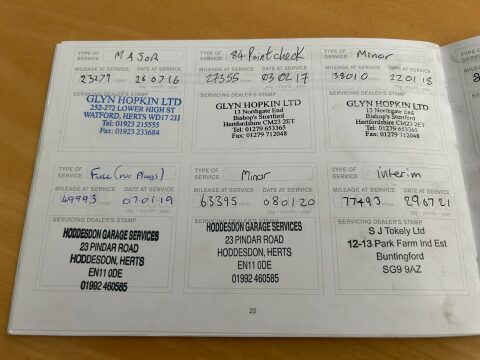 TYPE OF SERVICE MAJOR
MILEAGE AT SERVICE DATE AT SERVICE
23271 miles 28.07.16
day - month - year
SERVICING DEALER'S STAMP
GLYN HOPKIN LTD
252-272 LOWER HIGH ST
WATFORD, HERTS WD17 2JJ
Tel: 01923 215555
Fax: 01923 233684
TYPE OF SERVICE 84 Point check
MILEAGE AT SERVICE DATE AT SERVICE
27355 miles 03.02.17
day - month - year
SERVICING DEALER'S STAMP
GLYN HOPKIN LTD
13 Northgate End
Bishop's Stortford
Hertfordshire CM23 2ET
Tel: 01279 653365
Fax: 01279 712048
TYPE OF SERVICE Minor
MILEAGE AT SERVICE DATE AT SERVICE
38010 miles 22.01.18
day - month - year
SERVICING DEALER'S STAMP
GLYN HOPKIN LTD
13 Northgate End
Bishop's Stortford
Hertfordshire CM23 2ET
Tel: 01279 653365
Fax: 01279 712048
TYPE OF SERVICE Full (no Plugs)
MILEAGE AT SERVICE DATE AT SERVICE
49993 miles 07.01.19
day - month - year
SERVICING DEALER'S STAMP
HODDESDON GARAGE SERVICES
23 PINDAR ROAD
HODDESDON, HERTS
EN11 0DE
01992 460585
TYPE OF SERVICE Minor
MILEAGE AT SERVICE DATE AT SERVICE
63395 miles 08.01.20
day - month - year
SERVICING DEALER'S STAMP
HODDESDON GARAGE SERVICES
23 PINDAR ROAD
HODDESDON, HERTS
EN11 0DE
01992 460585
TYPE OF SERVICE interim
MILEAGE AT SERVICE DATE AT SERVICE
77493 miles 29.07.21
day - month - year
SERVICING DEALER'S STAMP
S J Tokely Ltd
12-13 Park Farm Ind Est
Buntingford
SG9 9AZ
22